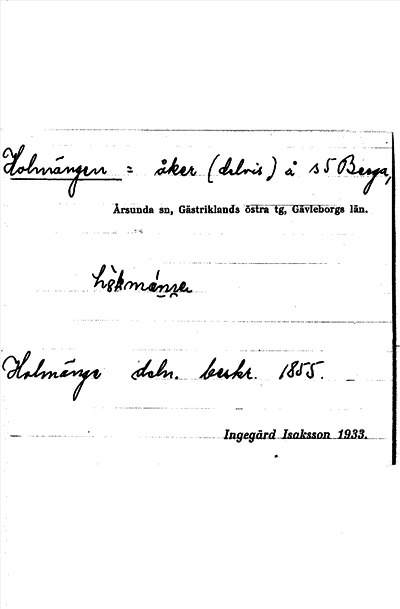 Holmängen = åker (delvis) å s5 Berga,
Årsunda sn, Gästriklands östra tg, Gävleborgs län.
Holmänge deln. beskr. 1855.
Ingegärd Isaksson 1933.